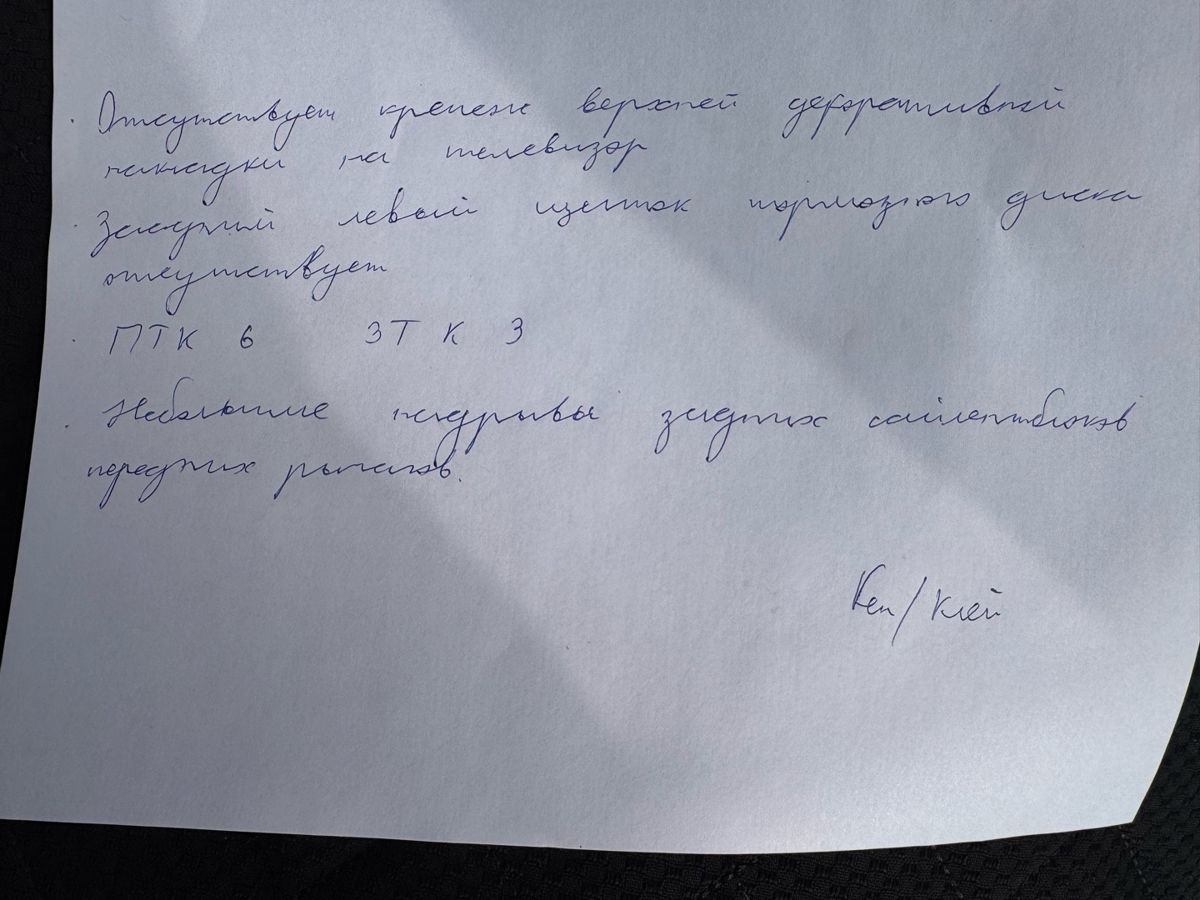 · Отсутствует крепеж верхней декоративной
накладки на телевизор
· Задний левый щиток тормозного диска
отсутствует
· ПТК 6 ЗТК 3
· Небольшие надрывы задних сайлентблоков
передних рычагов.